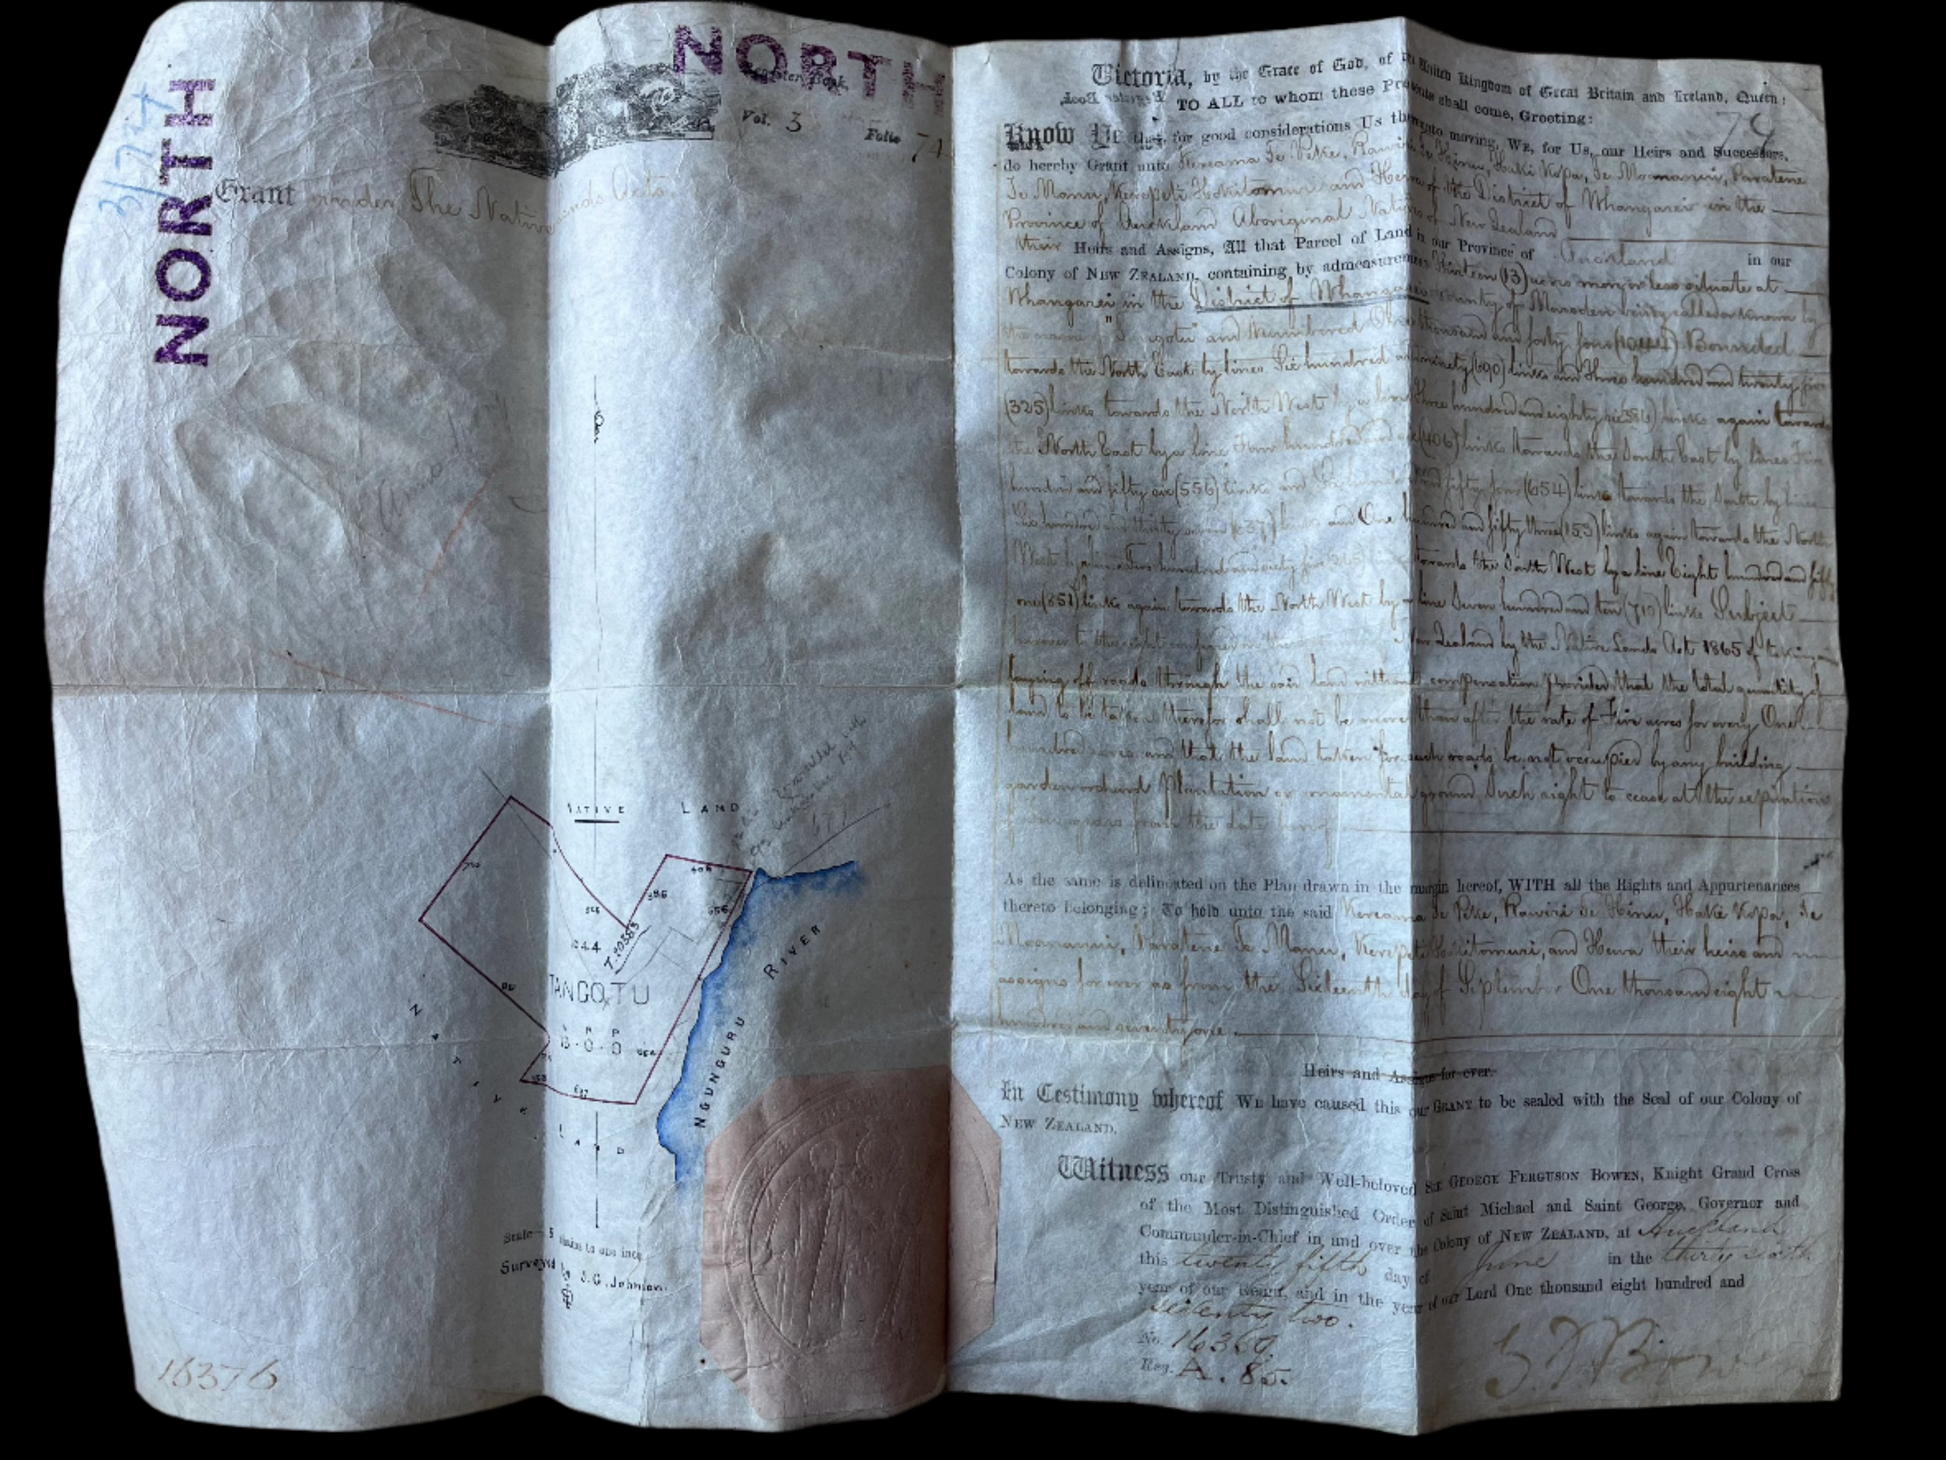 3/74
NORTH
NORTH
Register Book
Vol. 3 Folio 74
Grant under The Native Lands Acts
NATIVE LAND
710
406
386
656
1044
T.20383
TANGOTU
A R P
13-0-0
654
153
637
NATIVE LAND
NGUNGURU RIVER
Scale 5 chains to one inch
Surveyed by J.G. Johnson
16376
74
Victoria, by the Grace of God, of the United Kingdom of Great Britain and Ireland, Queen:
Register Book,
TO ALL to whom these Presents shall come, Greeting:
Know Ye that, for good considerations Us thereunto moving, WE, for Us, our Heirs and Successors,
do hereby Grant unto Kereama Te Peke, Rawiri Te Hinu, Haki Kopa, Te Moananui, Paratene
Te Manu, Kerepeti Hokitomuri and Hewa of the District of Whangarei in the
Province of Auckland Aboriginal Natives of New Zealand
their Heirs and Assigns, All that Parcel of Land in our Province of Auckland in our
Colony of NEW ZEALAND, containing by admeasurement Thirteen (13) acres more or less situate at
Whangarei in the District of Whangarei County of Marsden being called or known by
the name " " and Numbered One thousand and forty four (1044) Bounded
towards the North East by lines Six hundred and ninety (690) links and Three hundred and twenty five
(325) links towards the North West by a line Three hundred and eighty six (386) links again towards
the North East by a line Four hundred and six (406) links towards the South East by lines Five
hundred and fifty six (556) links and Six hundred and fifty four (654) links towards the South by lines
Six hundred and thirty seven (637) links and One hundred and fifty three (153) links again towards the North
West by a line Two hundred and sixty five (265) links towards the South West by a line Eight hundred and fifty
one (851) links again towards the North West by a line Seven hundred and ten (710) links Subject
however to the right New Zealand by the Native Lands Act 1865 of taking and
laying off roads through the said land without compensation Provided that the total quantity of
land to be taken therefor shall not be more than after the rate of Five acres for every One
hundred acres and that the land taken for such roads be not occupied by any building
garden orchard Plantation or ornamental ground Such right to cease at the expiration
years from the date hereof
As the same is delineated on the Plan drawn in the margin hereof, WITH all the Rights and Appurtenances
thereto belonging; To hold unto the said Kereama Te Peke, Rawiri Te Hinu, Haki Kopa, Te
Moananui, Paratene Te Manu, Kerepeti Hokitomuri, and Hewa their heirs and
assigns for ever as from the Sixteenth day of September One thousand eight
hundred and seventy one.
Heirs and Assigns for ever.
In Testimony whereof WE have caused this our GRANT to be sealed with the Seal of our Colony of
NEW ZEALAND.
Witness our Trusty and Well-beloved SIR GEORGE FERGUSON BOWEN, Knight Grand Cross
of the Most Distinguished Order of Saint Michael and Saint George, Governor and
Commander-in-Chief in and over the Colony of NEW ZEALAND, at Auckland
this twenty fifth day of June in the thirty sixth
year of our Reign, and in the year of our Lord One thousand eight hundred and
seventy two.
No. 16360
Reg. A. 85.
G. F. Bowen